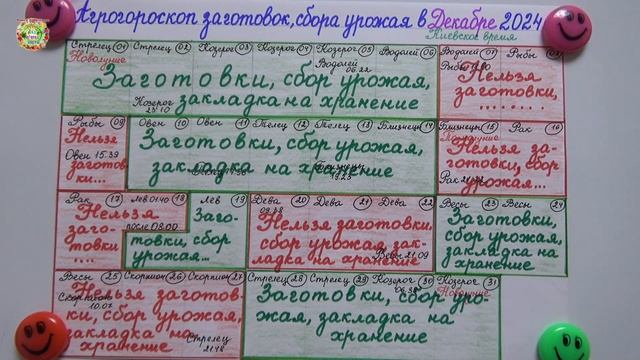 Агрогороскоп заготовок, сбора урожая в Декабре 2024
Киевское время
Стрелец 01 Стрелец 02 Козерог 03 Козерог 04 Козерог 05 Водолей 06 Водолей 07 Рыбы 08
Новолуние Водолей 06.22 Рыбы
Заготовки, сбор урожая, закладка на хранение
Козерог 23.10
Нельзя заготовки, .......
Рыбы 09 Овен 10 Овен 11 Телец 12 Телец 13 Близнецы 14 Близнецы 15 Рак 16
Нельзя заготовки...
Овен 15.39
Заготовки, сбор урожая, закладка на хранение
Полнолуние
Нельзя заготовки, сбор урожая...
Рак
Рак 17 Лев 01.40 18 Лев 19 Дева 20 Дева 21 Дева 22 Весы 23 Весы 24
Нельзя заготовки ...
после 08.00
Заготовки, сбор урожая...
Нельзя заготовки, сбор урожая, закладка на хранение
Весы 21.09
Заготовки, сбор урожая, закладка на хранение
Весы 25 Скорпион 26 Скорпион 27 Стрелец 28 Стрелец 29 Козерог 30 Козерог 31
Скорпион 10.07
Нельзя заготовки, сбор урожая, закладка на хранение
Стрелец
Новолуние
Заготовки, сбор урожая, закладка на хранение